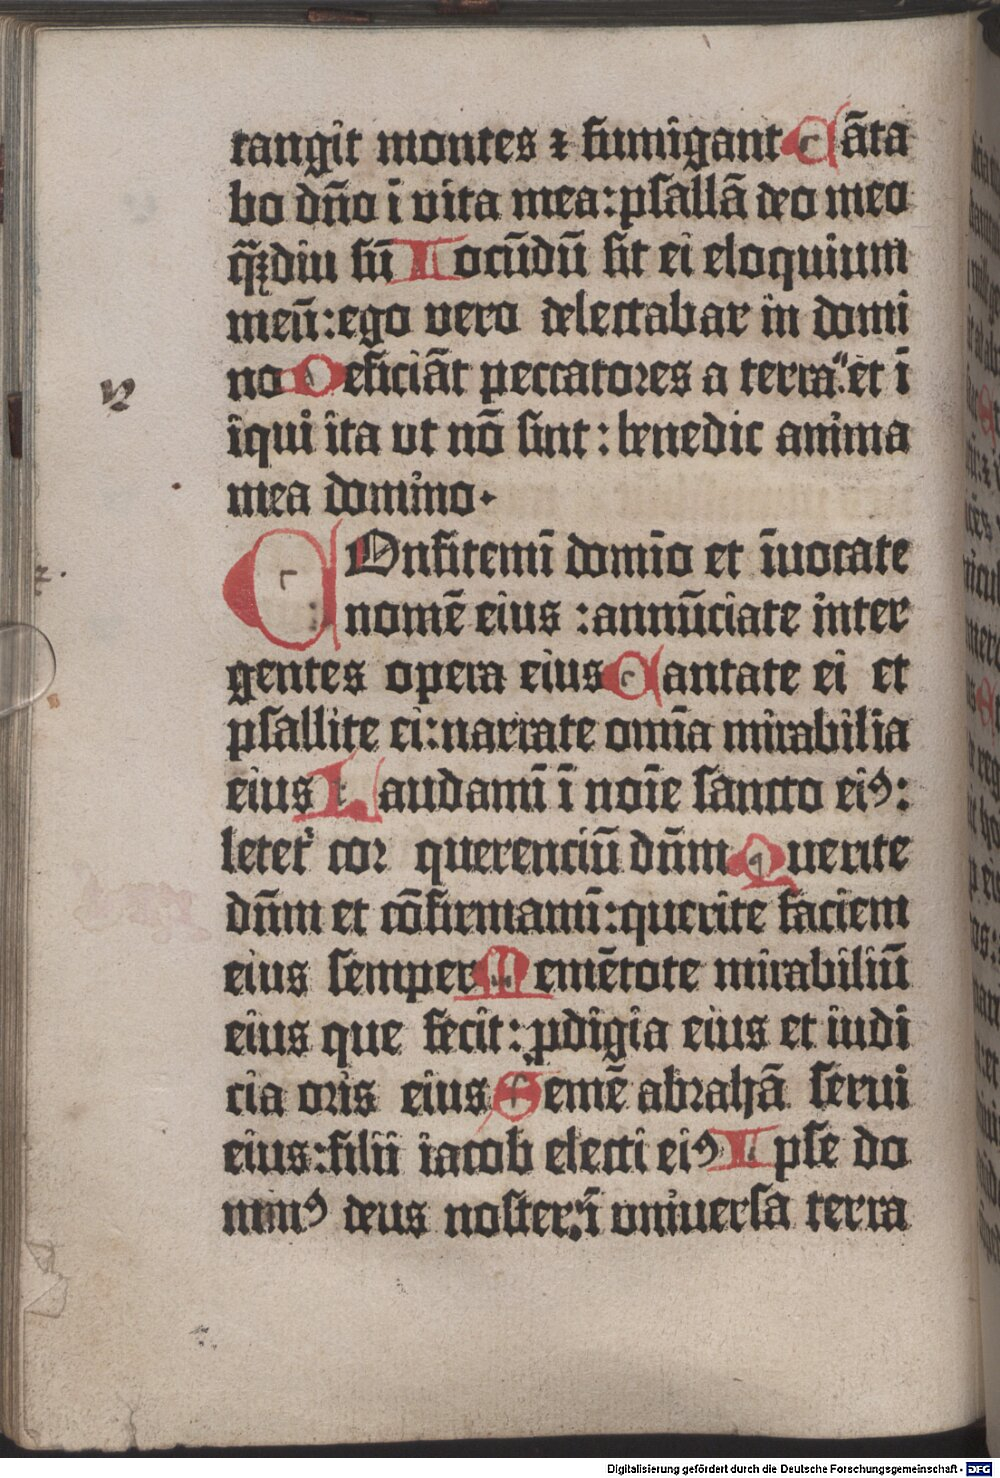 tangit montes ⁊ fumigant Cāta
bo dn̄o ī vita mea: psallā deo meo
qͣꝫdiu sū Iocūdū sit ei eloquium
meū: ego vero delectabar in domi
no Deficiāt peccatores a terra: et ī
īqui ita ut nō sint: benedic anima
mea domino.
COnfitemī domīo et īuocate
nomē eius: annūciate inter
gentes opera eius Cantate ei et
psallite ei: narrate om̄ia mirabilia
eius Laudamī ī noīe sancto eiꝰ:
letet᷑ cor querenciū dn̄m Querite
dn̄m et cōfirmamī: querite faciem
eius semper Memētote mirabiliū
eius que fecit: ꝓdigia eius et iudi
cia oris eius Semē abrahā serui
eius: filii iacob electi eiꝰ Ipse do
minꝰ deus noster: ī vniuersa terra
Digitalisierung gefördert durch die Deutsche Forschungsgemeinschaft - DFG